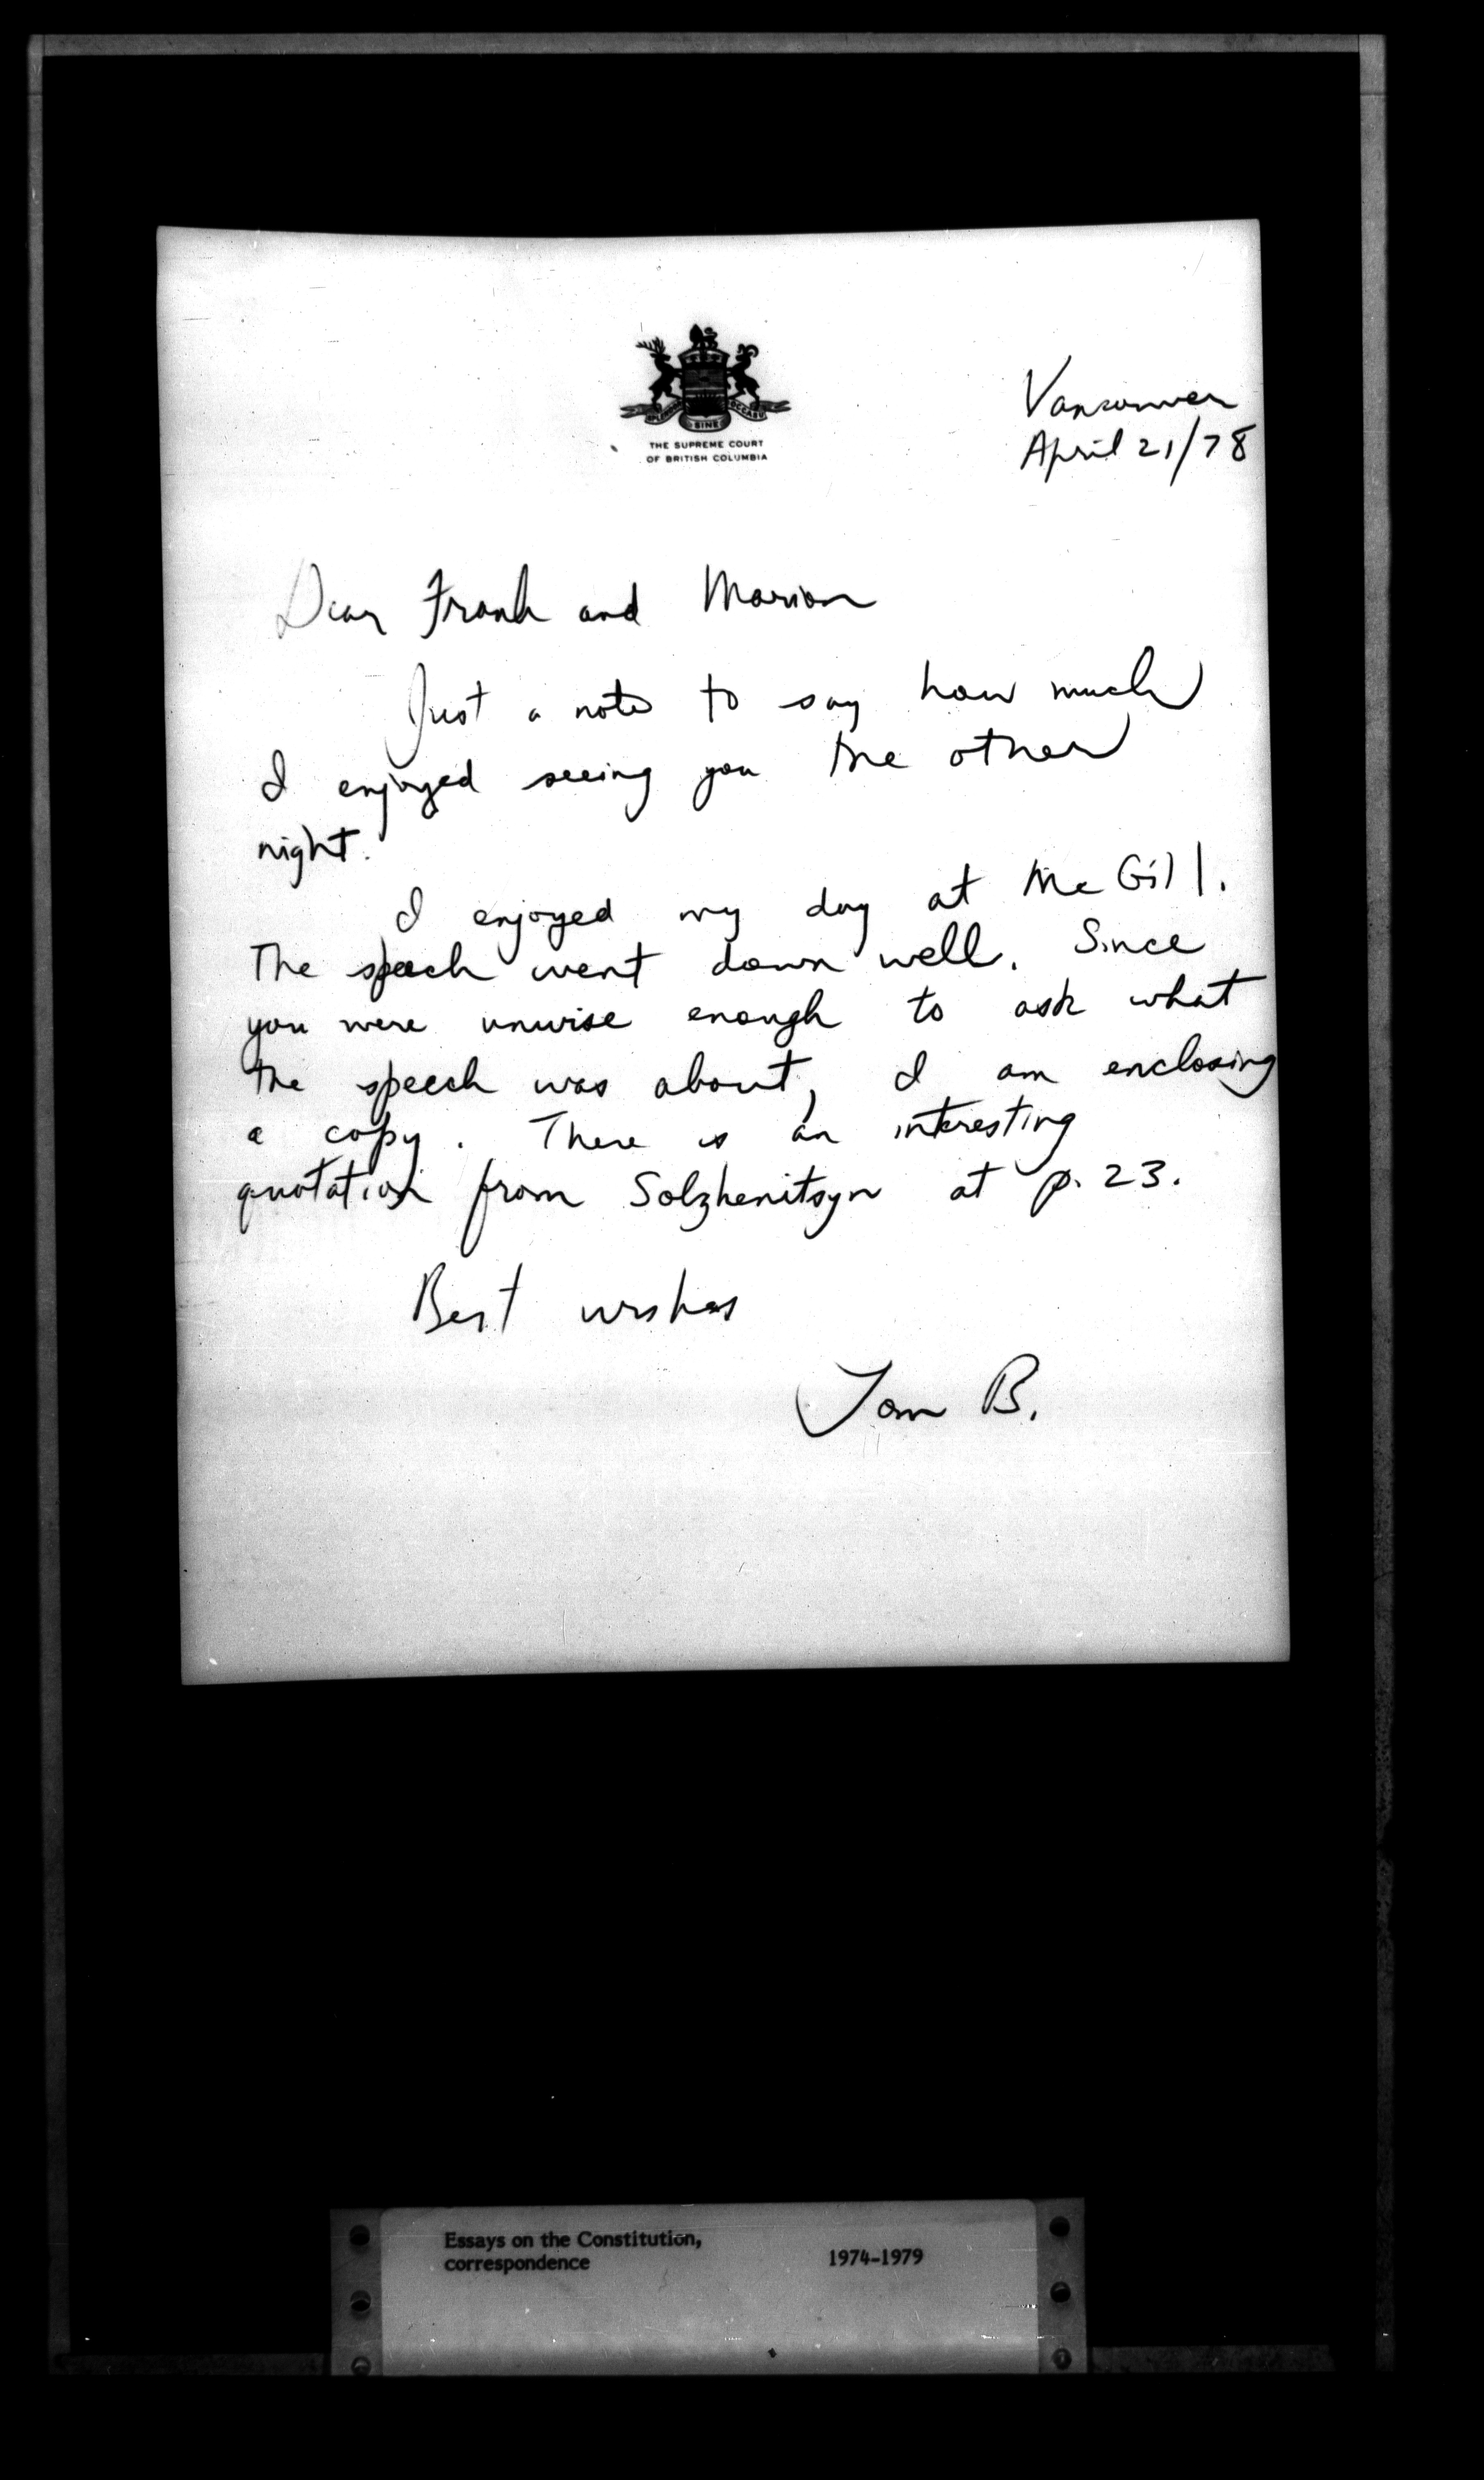 SPLENDOR SINE OCCASU
THE SUPREME COURT
OF BRITISH COLUMBIA
Vancouver
April 21/78
Dear Frank and Marian
Just a note to say how much
I enjoyed seeing you the other
night.
I enjoyed my day at McGill.
The speech went down well. Since
you were unwise enough to ask what
the speech was about, I am enclosing
a copy. There is an interesting
quotation from Solzhenitsyn at p. 23.
Best wishes
Tom B.
Essays on the Constitution,
correspondence 1974-1979